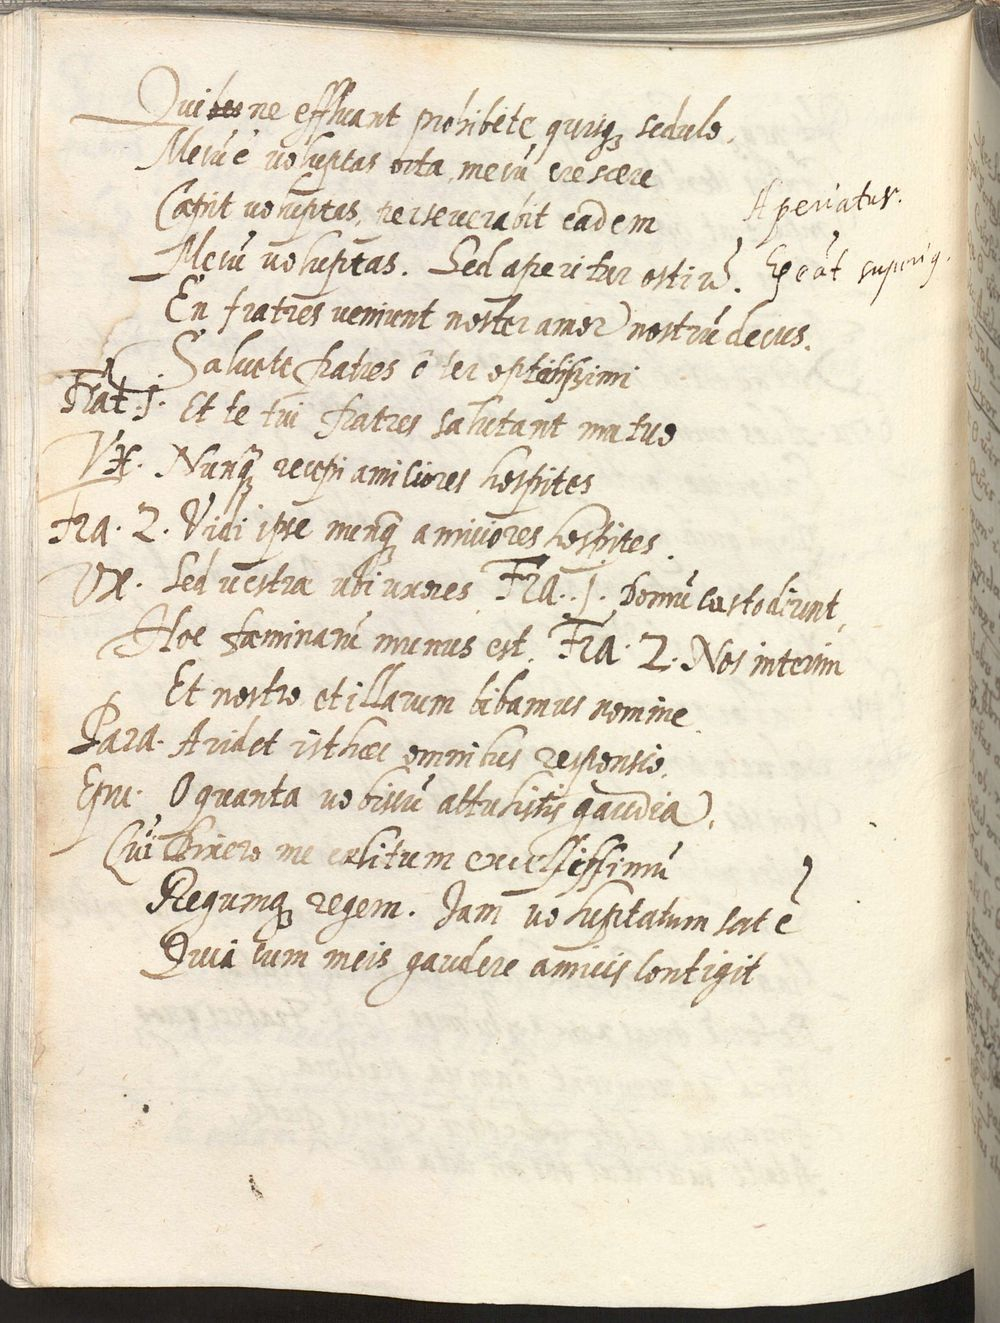 Qui ne effluant prohibete, quisq sedulo.
Mecū ē voluptas orta, mecū crescere
Cæpit voluptas, perseverabit eadem
Aperiatur.
Mecū voluptas. Sed aperitur ostiū.
En fratres veniunt noster amor nostrū decus.
Salvete fratres ô ter optatissimi
Frat. 1. Et te tui fratres salutant mutuo
Vx. Nunq̄ recepi amiciores hospites
Fra. 2. Vidi ipse nunq̄ amiciores hospites.
Vx. Sed vestræ ubi uxores Fra. 1. Domū custodiunt,
Hoc fæminarū munus est. Fra. 2. Nos interim
Et nostro et illarum bibamus nomine
Para. Aridet isthæc omnibus responsio.
Epu. O quanta vobiscū attulistis gaudia.
Qui me cælitum excelsissimū
Regumq regem. Jam voluptatum sat ē
Quia cum meis gaudere amicis contigit